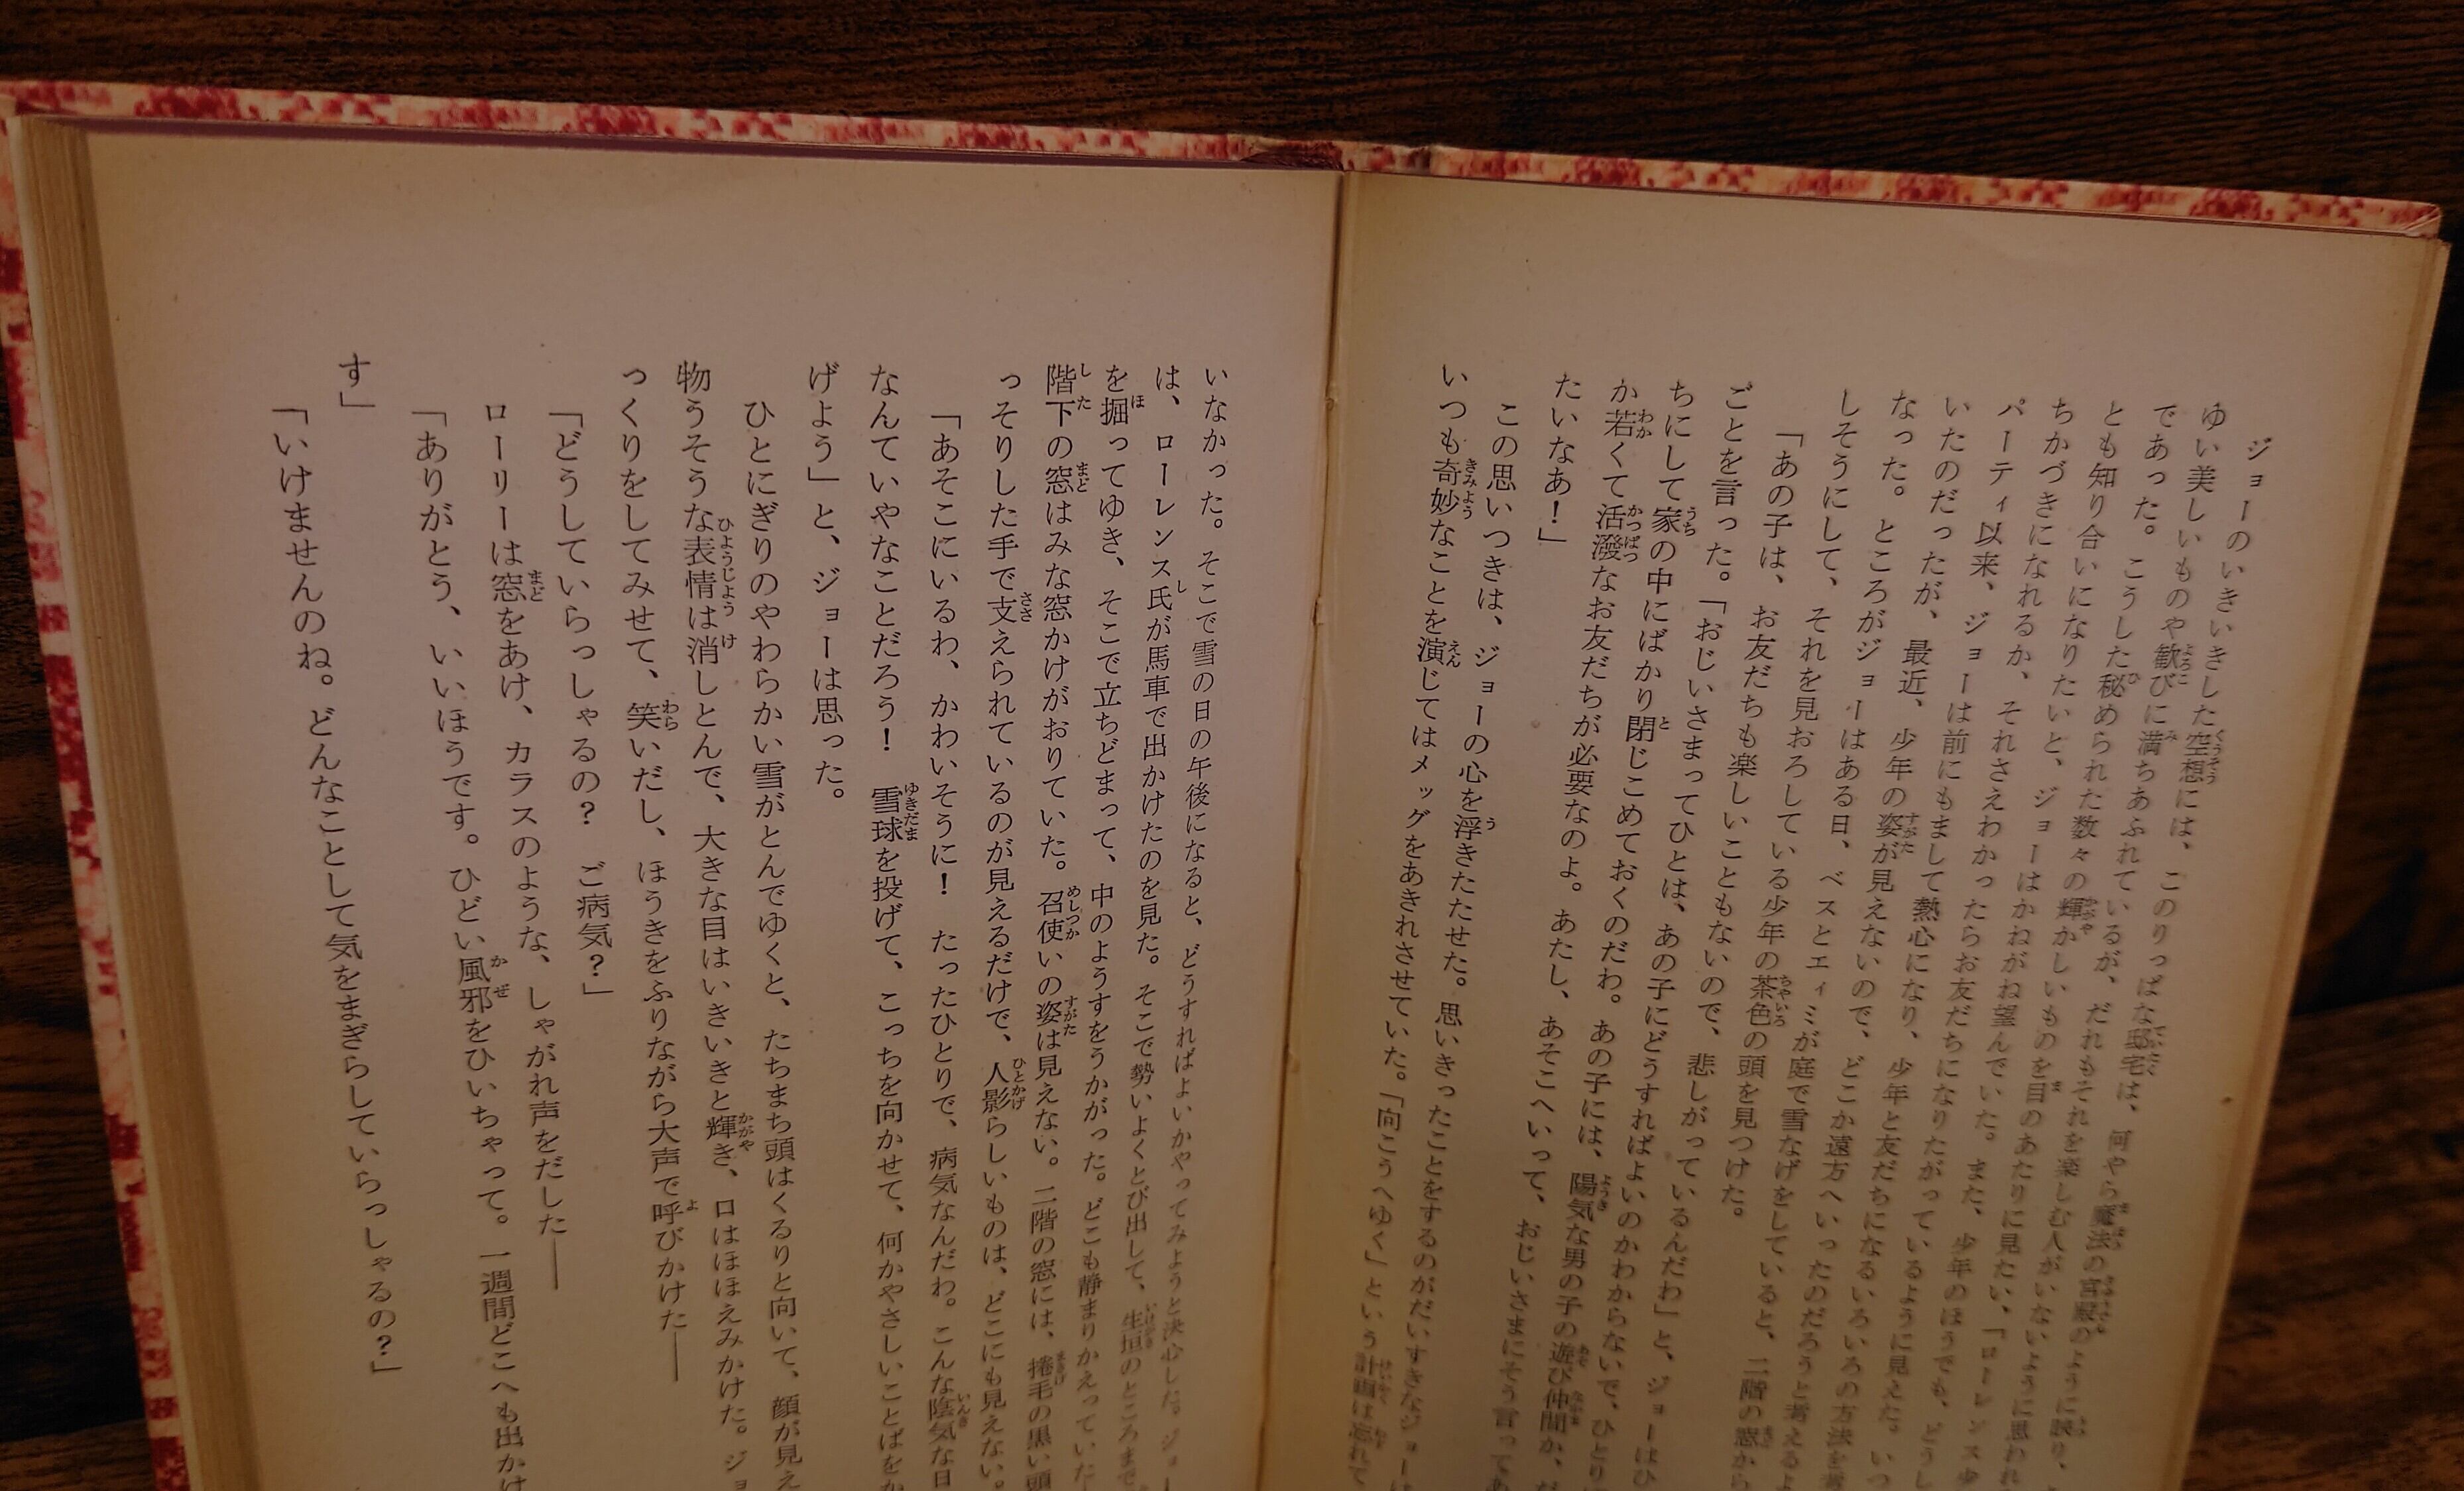 ジョーのいきいきした空想には、このりっぱな邸宅は、何やら魔法の宮殿のように映り、
ゆい美しいものや歓びに満ちあふれているが、だれもそれを楽しむ人がいないように思われ
であった。こうした秘められた数々の輝かしいものを目のあたりに見たい、「ローレンス少
とも知り合いになりたいと、ジョーはかねがね望んでいた。また、少年のほうでも、どうし
ちかづきになれるか、それさえわかったらお友だちになりたがっているように見えた。いつ
パーティ以来、ジョーは前にもまして熱心になり、少年と友だちになるいろいろの方法を考
いたのだったが、最近、少年の姿が見えないので、どこか遠方へいったのだろうと考えるよ
なった。ところがジョーはある日、ベスとエィミが庭で雪なげをしていると、二階の窓から
しそうにして、それを見おろしている少年の茶色の頭を見つけた。
「あの子は、お友だちも楽しいこともないので、悲しがっているんだわ」と、ジョーはひ
ごとを言った。「おじいさまってひとは、あの子にどうすればよいのかわからないで、ひとり
ちにして家の中にばかり閉じこめておくのだわ。あの子には、陽気な男の子の遊び仲間か、だ
か若くて活潑なお友だちが必要なのよ。あたし、あそこへいって、おじいさまにそう言ってあ
たいなあ！」
この思いつきは、ジョーの心を浮きたたせた。思いきったことをするのがだいすきなジョーは
いつも奇妙なことを演じてはメッグをあきれさせていた。「向こうへゆく」という計画は忘れて
いなかった。そこで雪の日の午後になると、どうすればよいかやってみようと決心した。ジョー
は、ローレンス氏が馬車で出かけたのを見た。そこで勢いよくとび出して、生垣のところまで
を掘ってゆき、そこで立ちどまって、中のようすをうかがった。どこも静まりかえっていた
階下の窓はみな窓かけがおりていた。召使いの姿は見えない。二階の窓には、捲毛の黒い頭
っそりした手で支えられているのが見えるだけで、人影らしいものは、どこにも見えない。
「あそこにいるわ、かわいそうに！　たったひとりで、病気なんだわ。こんな陰気な日
なんていやなことだろう！　雪球を投げて、こっちを向かせて、何かやさしいことばをか
げよう」と、ジョーは思った。
ひとにぎりのやわらかい雪がとんでゆくと、たちまち頭はくるりと向いて、顔が見え
物うそうな表情は消しとんで、大きな目はいきいきと輝き、口はほほえみかけた。ジョ
っくりをしてみせて、笑いだし、ほうきをふりながら大声で呼びかけた――
「どうしていらっしゃるの？　ご病気？」
ローリーは窓をあけ、カラスのような、しゃがれ声をだした――
「ありがとう、いいほうです。ひどい風邪をひいちゃって。一週間どこへも出かけ
す」
「いけませんのね。どんなことして気をまぎらしていらっしゃるの？」